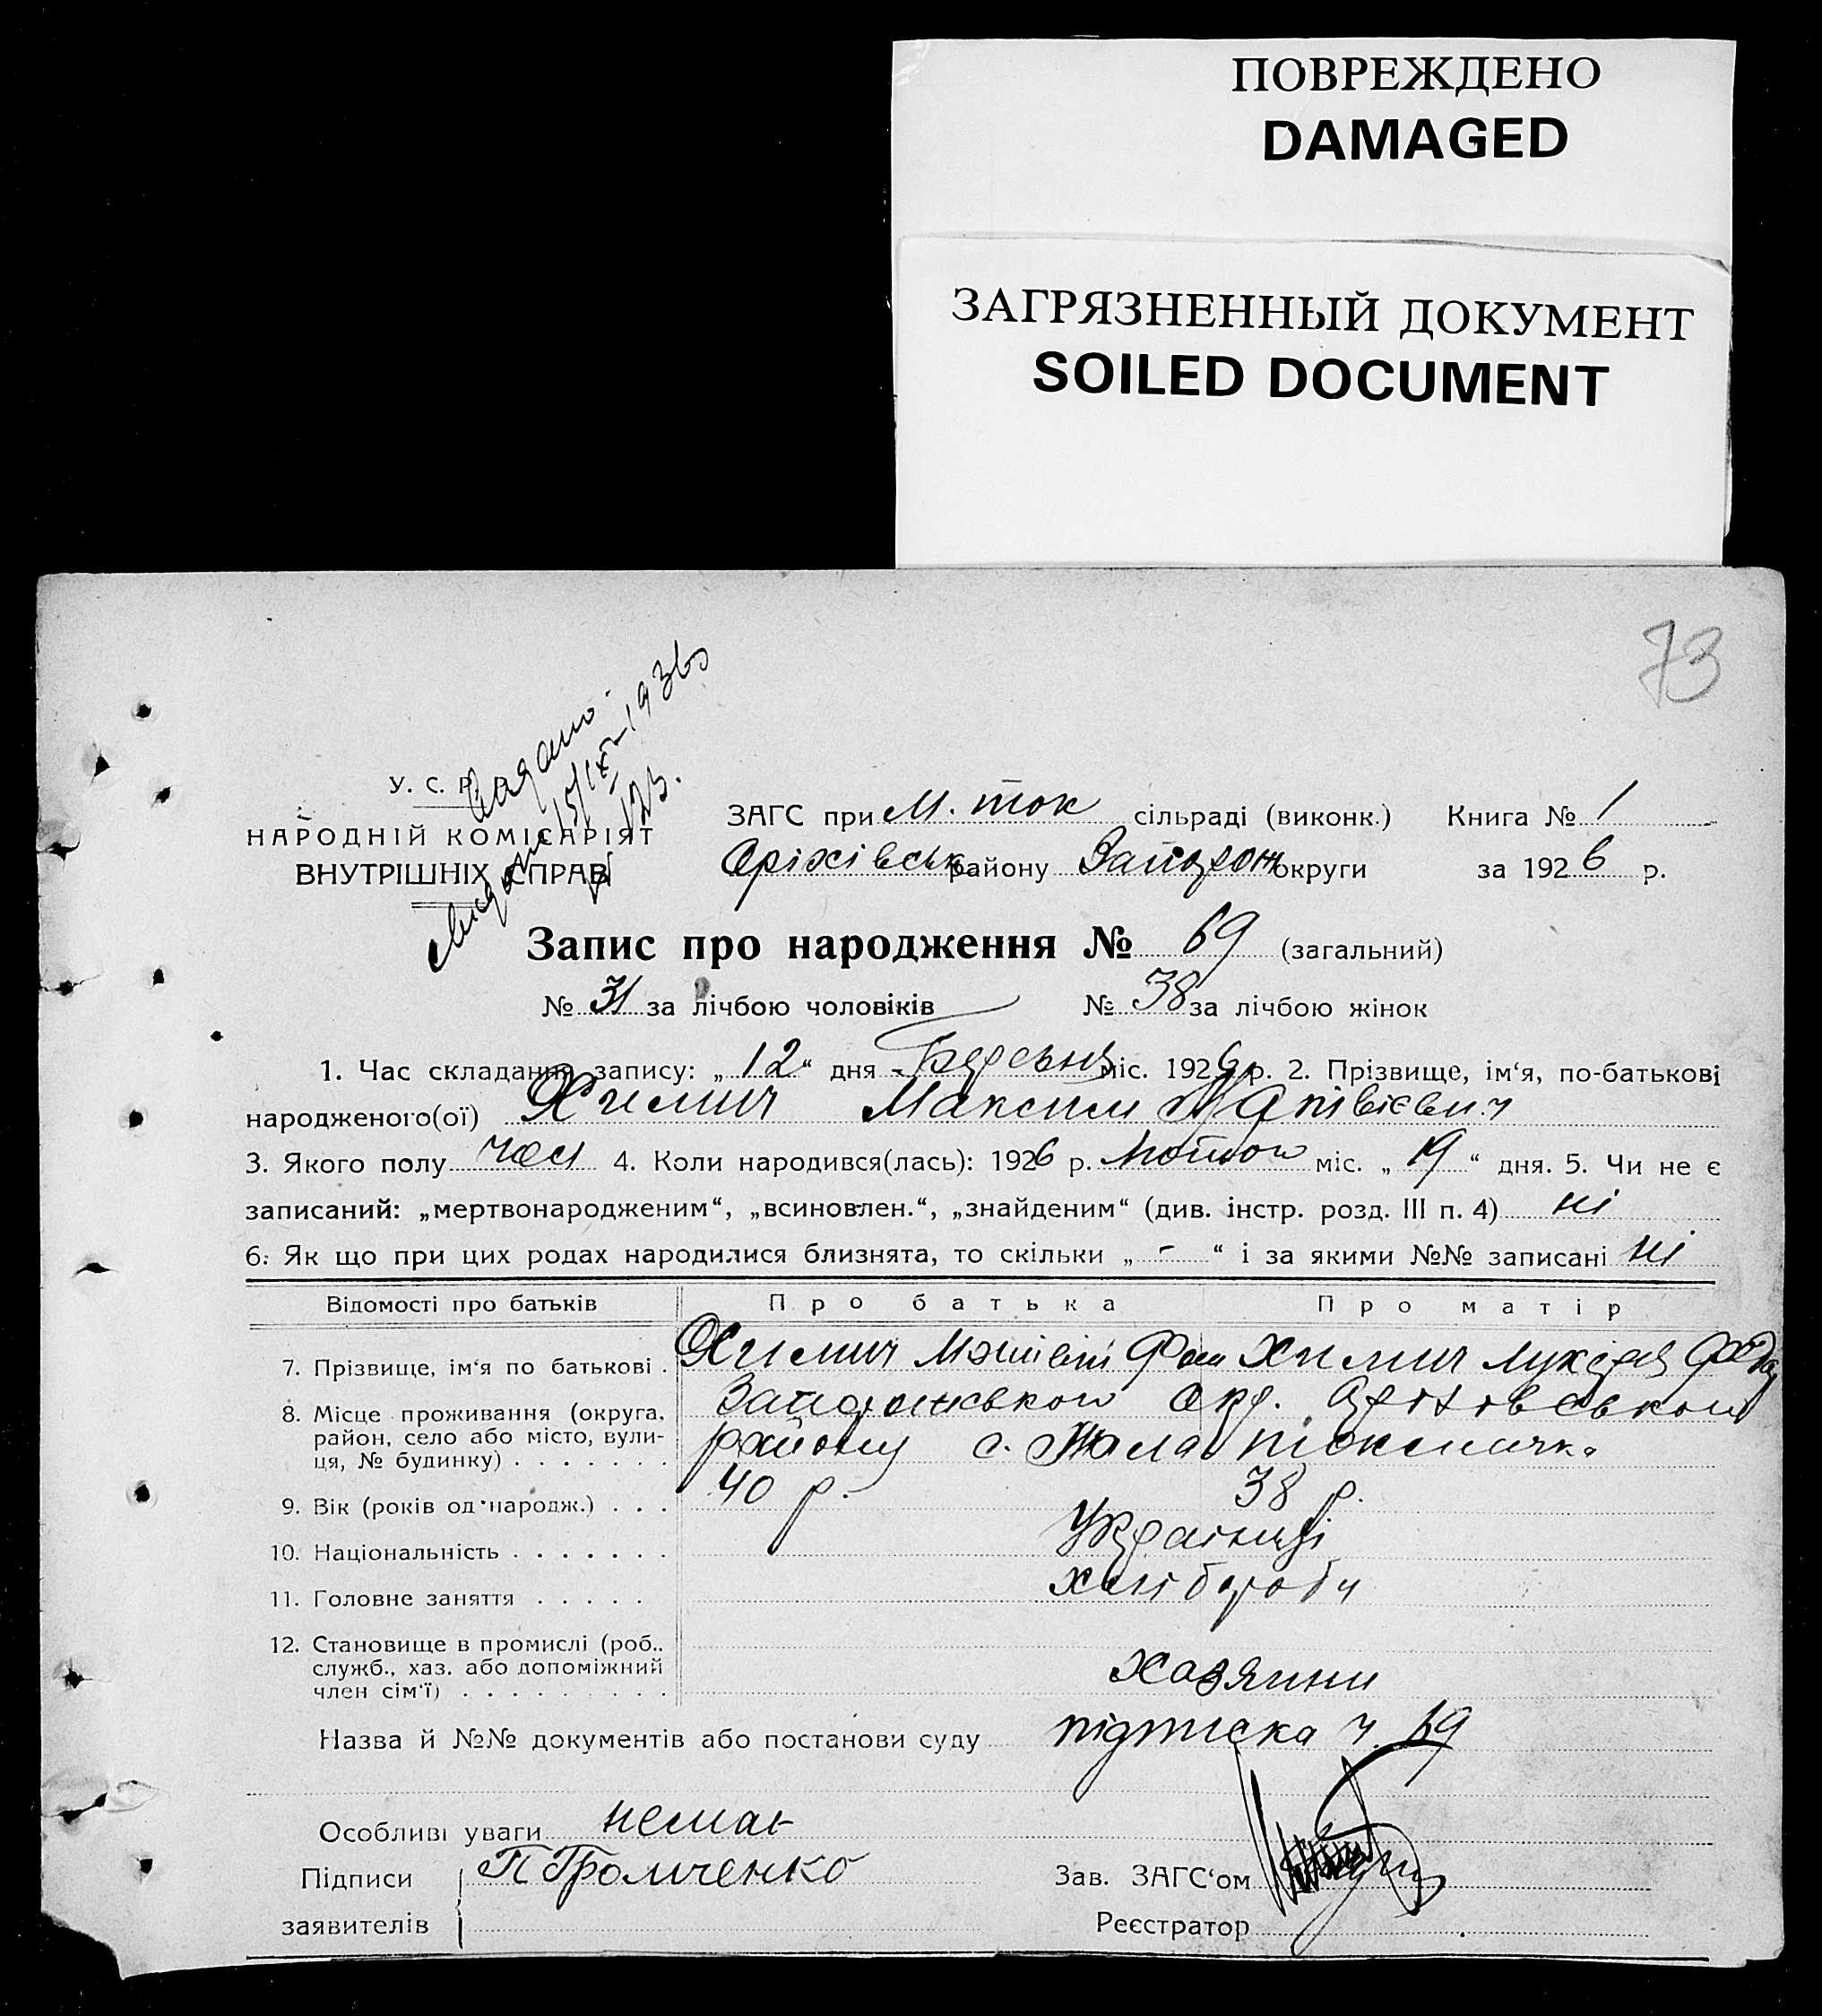 ПОВРЕЖДЕНО
DAMAGED
ЗАГРЯЗНЕННЫЙ ДОКУМЕНТ
SOILED DOCUMENT
73
15/IX-1936
123.
У. С. Р. Р.
НАРОДНІЙ КОМІСАРІЯТ
ВНУТРІШНІХ СПРАВ
ЗАГС при М. ток сільраді (виконк.) Книга № 1
Оріхівськ району Запорож округи за 1926 р.
Запис про народження № 69 (загальний)
№ 31 за лічбою чоловіків № 38 за лічбою жінок
1. Час складання запису: „ 12 “ дня Березня міс. 1926 р. 2. Прізвище, ім‘я, по-батькові
народженого(ої) Химич Максим Матвієвич
3. Якого полу чол 4. Коли народився(лась): 1926 р. Лютого міс. „ 19 “ дня. 5. Чи не є
записаний: „мертвонародженим“, „всиновлен.“, „знайденим“ (див. інстр. розд. III п. 4) ні
6. Як що при цих родах народилися близнята, то скільки „ - “ і за якими №№ записані ні
Відомості про батьків Про батька Про матір
7. Прізвище, ім‘я по батькові . Химич Матвій Химич Лукерія
8. Місце проживання (округа, Запорожського окр. Оріховського
район, село або місто, вули- району с. Мала Токмачка
ця, № будинку) . . . . . . .
9. Вік (років од народж.) . . . 40 р. 38 р.
10. Національність . . . . . . . Українці
11. Головне заняття . . . . . хлібороби
12. Становище в промислі (роб.,
служб., хаз. або допоміжний
член сім‘ї) . . . . . . . . . хазяини
Назва й №№ документів або постанови суду підписка ч. 69
Особливі уваги немає
Підписи П Громченко Зав. ЗАГС‘ом
заявителів Реєстратор